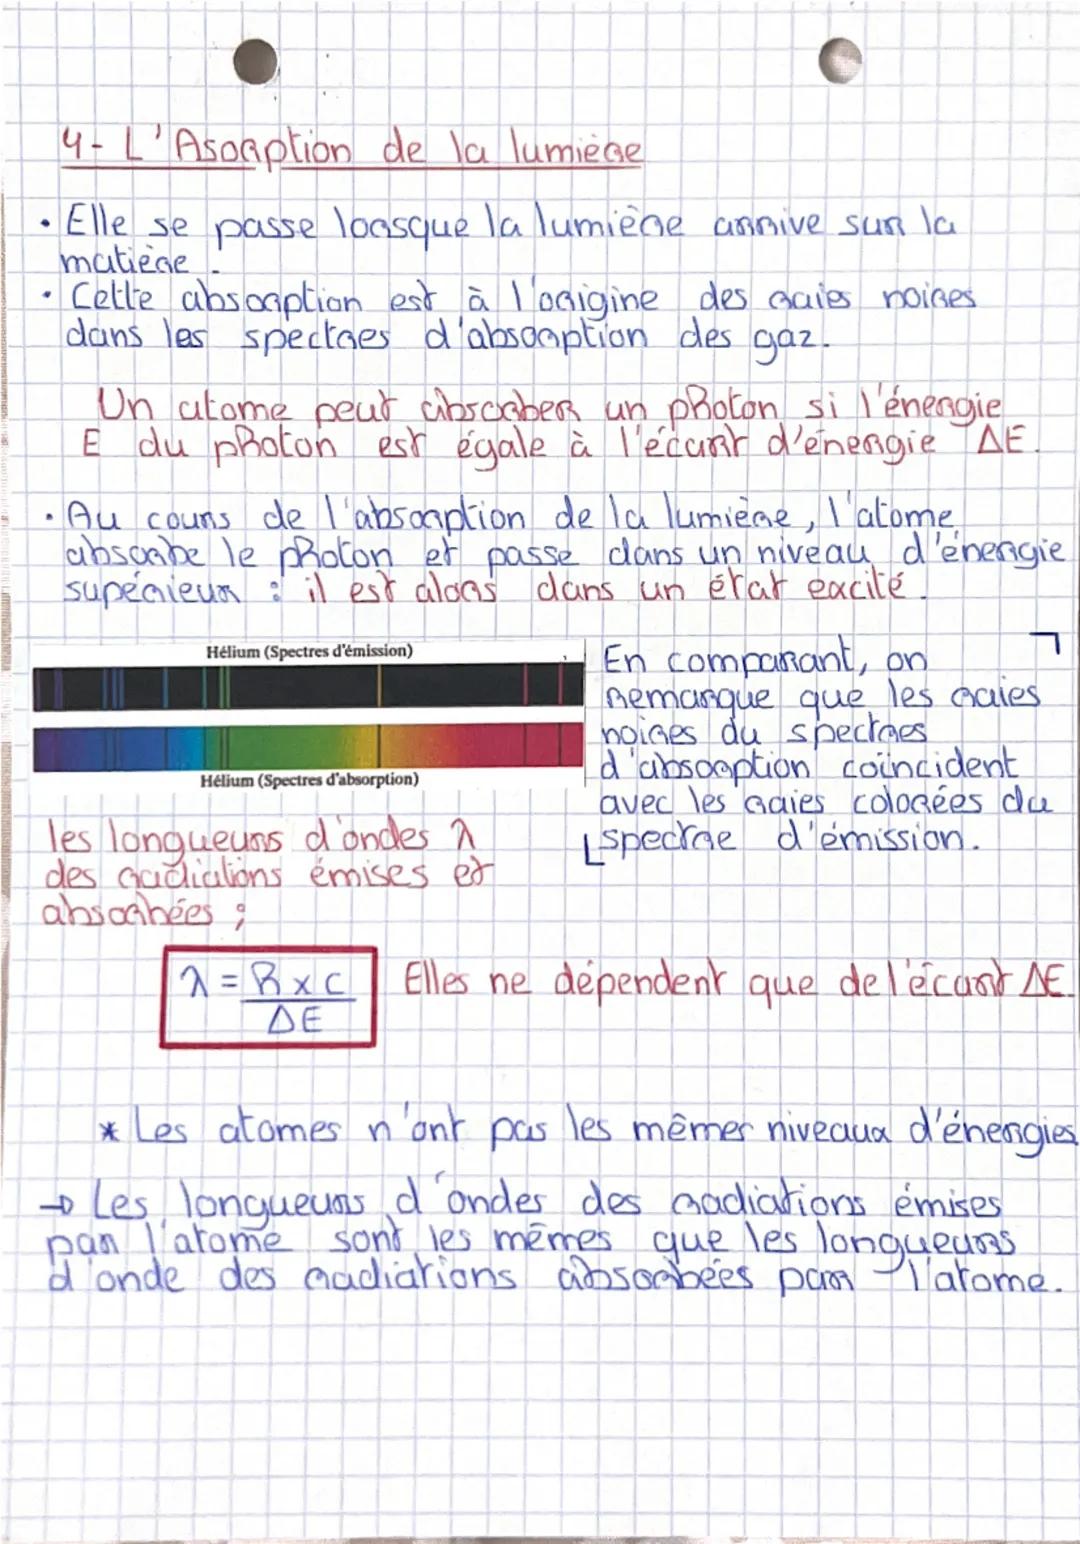 4- L'Asorption de la lumière
• Elle se passe lorsque la lumière arrive sur la
matière.
• Cette absorption est à l'origine des raies noires
dans les spectres d'absorption des gaz.
Un atome peut absorber un photon si l'énergie
E du photon est égale à l'écart d'énergie ΔE.
• Au cours de l'absorption de la lumière, l'atome
absorbe le photon et passe dans un niveau d'énergie
supérieur : il est alors dans un état excité.
Hélium (Spectres d'émission)
Hélium (Spectres d'absorption)
En comparant, on
remarque que les raies
noires du spectres
d'absorption coïncident
avec les raies colorées du
spectre d'émission.
les longueurs d'ondes λ
des radiations émises et
absorbées ;
λ = h x c
ΔE
Elles ne dépendent que de l'écart ΔE.
* Les atomes n'ont pas les mêmes niveaux d'énergies
→ Les longueurs d'ondes des radiations émises
par l'atome sont les mêmes que les longueurs
d'onde des radiations absorbées par l'atome.